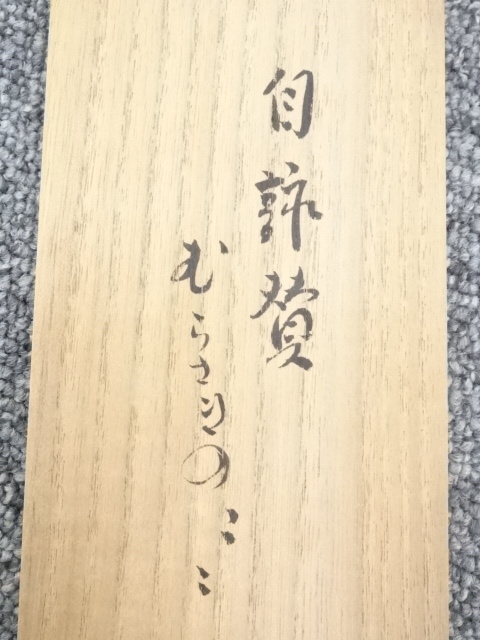 自詠賛
むらさきのミミ